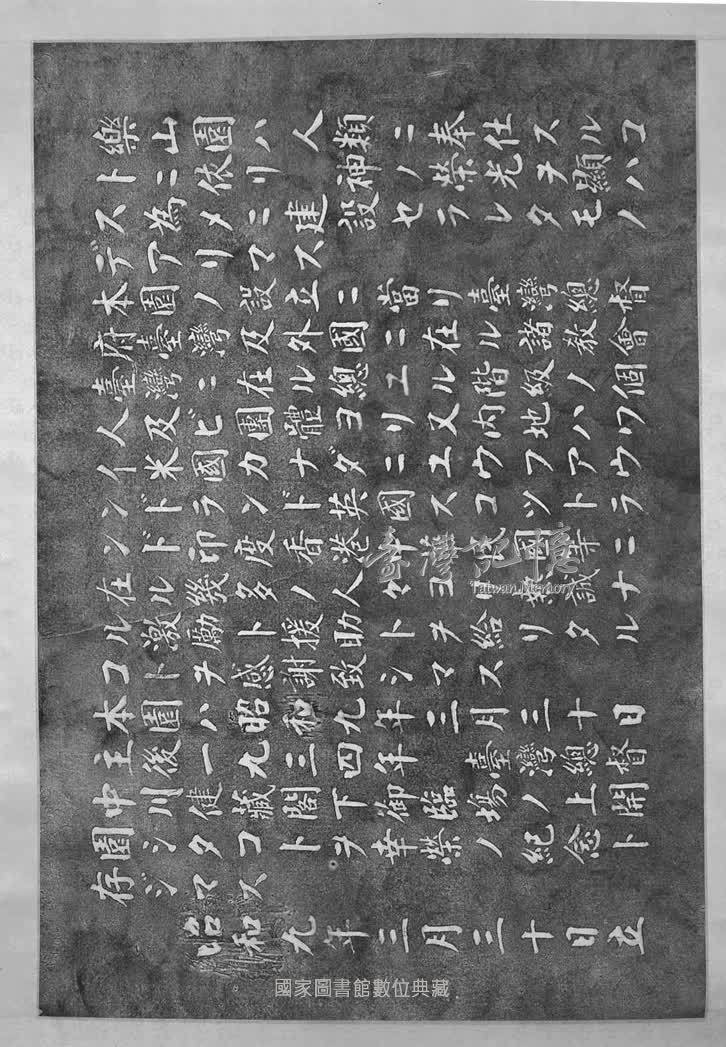 樂山園ハ人類ニ奉仕スルコ
トニ依リ神ノ榮光ヲ顯ハ
ス為メニ建設セラレタモノ
デアリマス
本園ノ設立ニ當リ臺灣總督
府臺灣及外國ニ在ル諸教會
臺灣ニ在ル總ユル階級ノ個
人及ビ團體ヨリ又内地ハワ
イ米國カナダニユウフアウ
ンドランド英國スコツトラ
ンド印度香港等ニ
在ル幾多ノ人々ヨリ熱誠ナ
ル激勵ト援助トヲ給リタル
コトヲ感謝致シマス
本園ハ昭和九年三月三十日
主後一九三四年臺灣總督
中川健藏閣下御臨場ノ上開
園シタコトヲ榮幸ノ紀念ト
存ジマス
昭和九年三月三十日立
臺灣記憶
Taiwan Memory
國家圖書館數位典藏